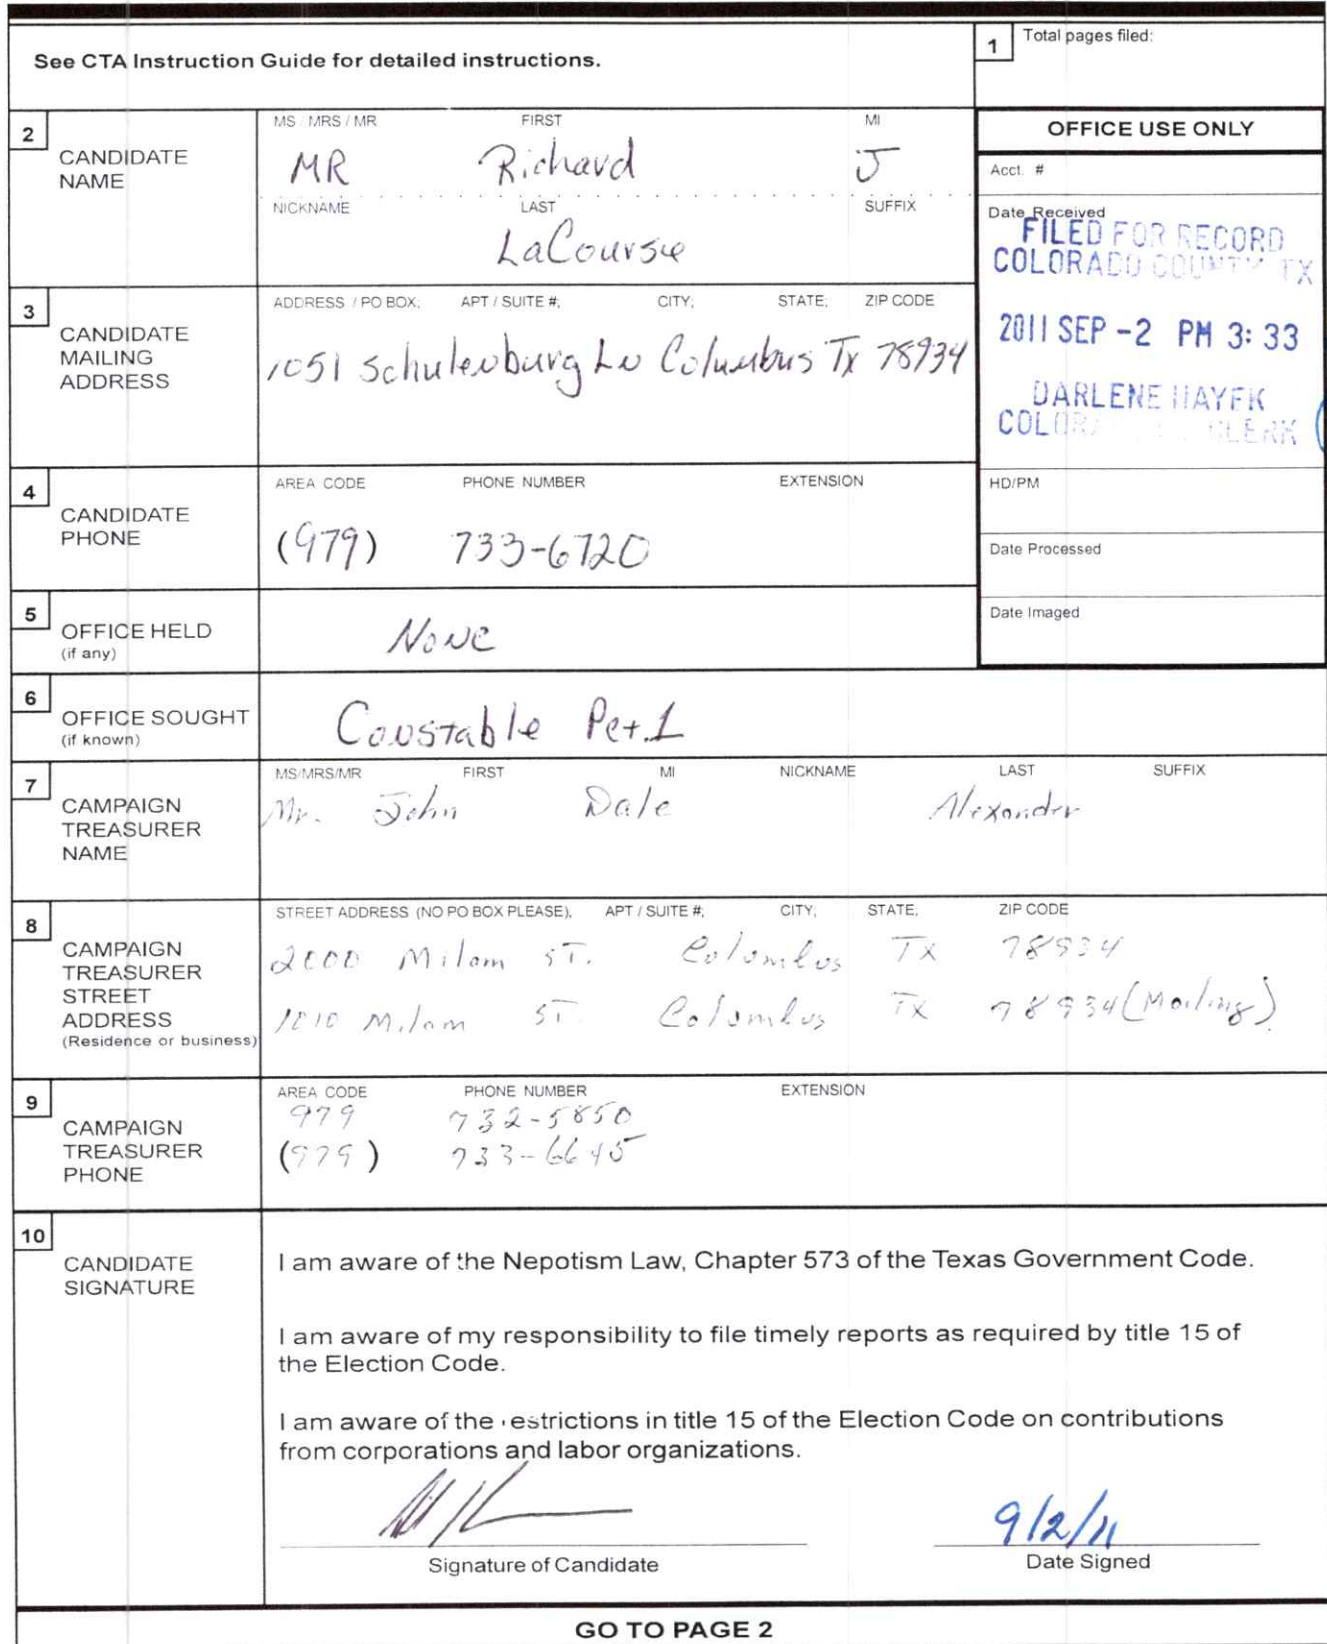 See CTA Instruction Guide for detailed instructions.
1 Total pages filed:
2 CANDIDATE NAME
MS / MRS / MR FIRST MI
MR Richard J
NICKNAME LAST SUFFIX
LaCourse
OFFICE USE ONLY
Acct. #
Date Received
FILED FOR RECORD
COLORADO COUNTY TX
2011 SEP -2 PM 3:33
DARLENE HAYEK
CLERK
HD/PM
Date Processed
Date Imaged
3 CANDIDATE MAILING ADDRESS
ADDRESS / PO BOX; APT / SUITE #; CITY; STATE; ZIP CODE
1051 Schulenburg Ln Columbus Tx 78934
4 CANDIDATE PHONE
AREA CODE PHONE NUMBER EXTENSION
(979) 733-6720
5 OFFICE HELD
(if any)
None
6 OFFICE SOUGHT
(if known)
Constable Pct.1
7 CAMPAIGN TREASURER NAME
MS/MRS/MR FIRST MI NICKNAME LAST SUFFIX
Mr. John Dale Alexander
8 CAMPAIGN TREASURER STREET ADDRESS
(Residence or business)
STREET ADDRESS (NO PO BOX PLEASE); APT / SUITE #; CITY; STATE; ZIP CODE
2000 Milam ST. Columbus TX 78934
1010 Milam ST. Columbus TX 78934 (Mailing)
9 CAMPAIGN TREASURER PHONE
AREA CODE PHONE NUMBER EXTENSION
979 732-5850
(979) 733-6645
10 CANDIDATE SIGNATURE
I am aware of the Nepotism Law, Chapter 573 of the Texas Government Code.
I am aware of my responsibility to file timely reports as required by title 15 of
the Election Code.
I am aware of the restrictions in title 15 of the Election Code on contributions
from corporations and labor organizations.
9/2/11
Signature of Candidate Date Signed
GO TO PAGE 2